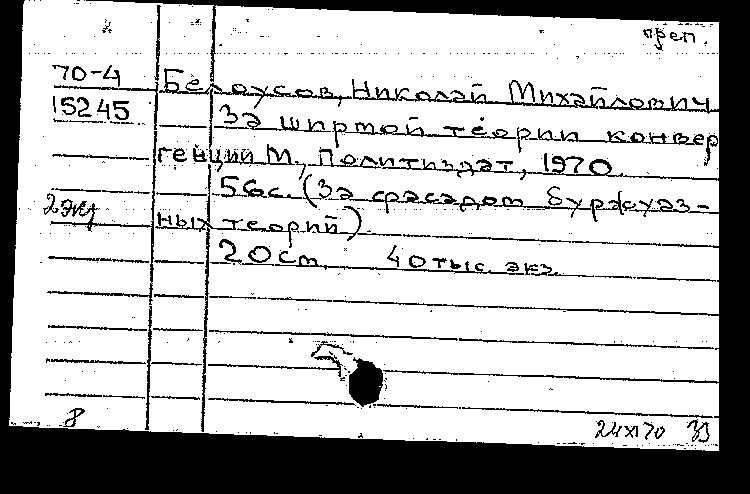 преп.
70-4
Белоусов, Николай Михайлович
15245
За ширмой теории конвер
генции М., Политиздат, 1970.
56с. (За фасадом буржуаз-
2 экз
ных теорий)
20 см. 40 тыс. экз.
8
24 XI 70